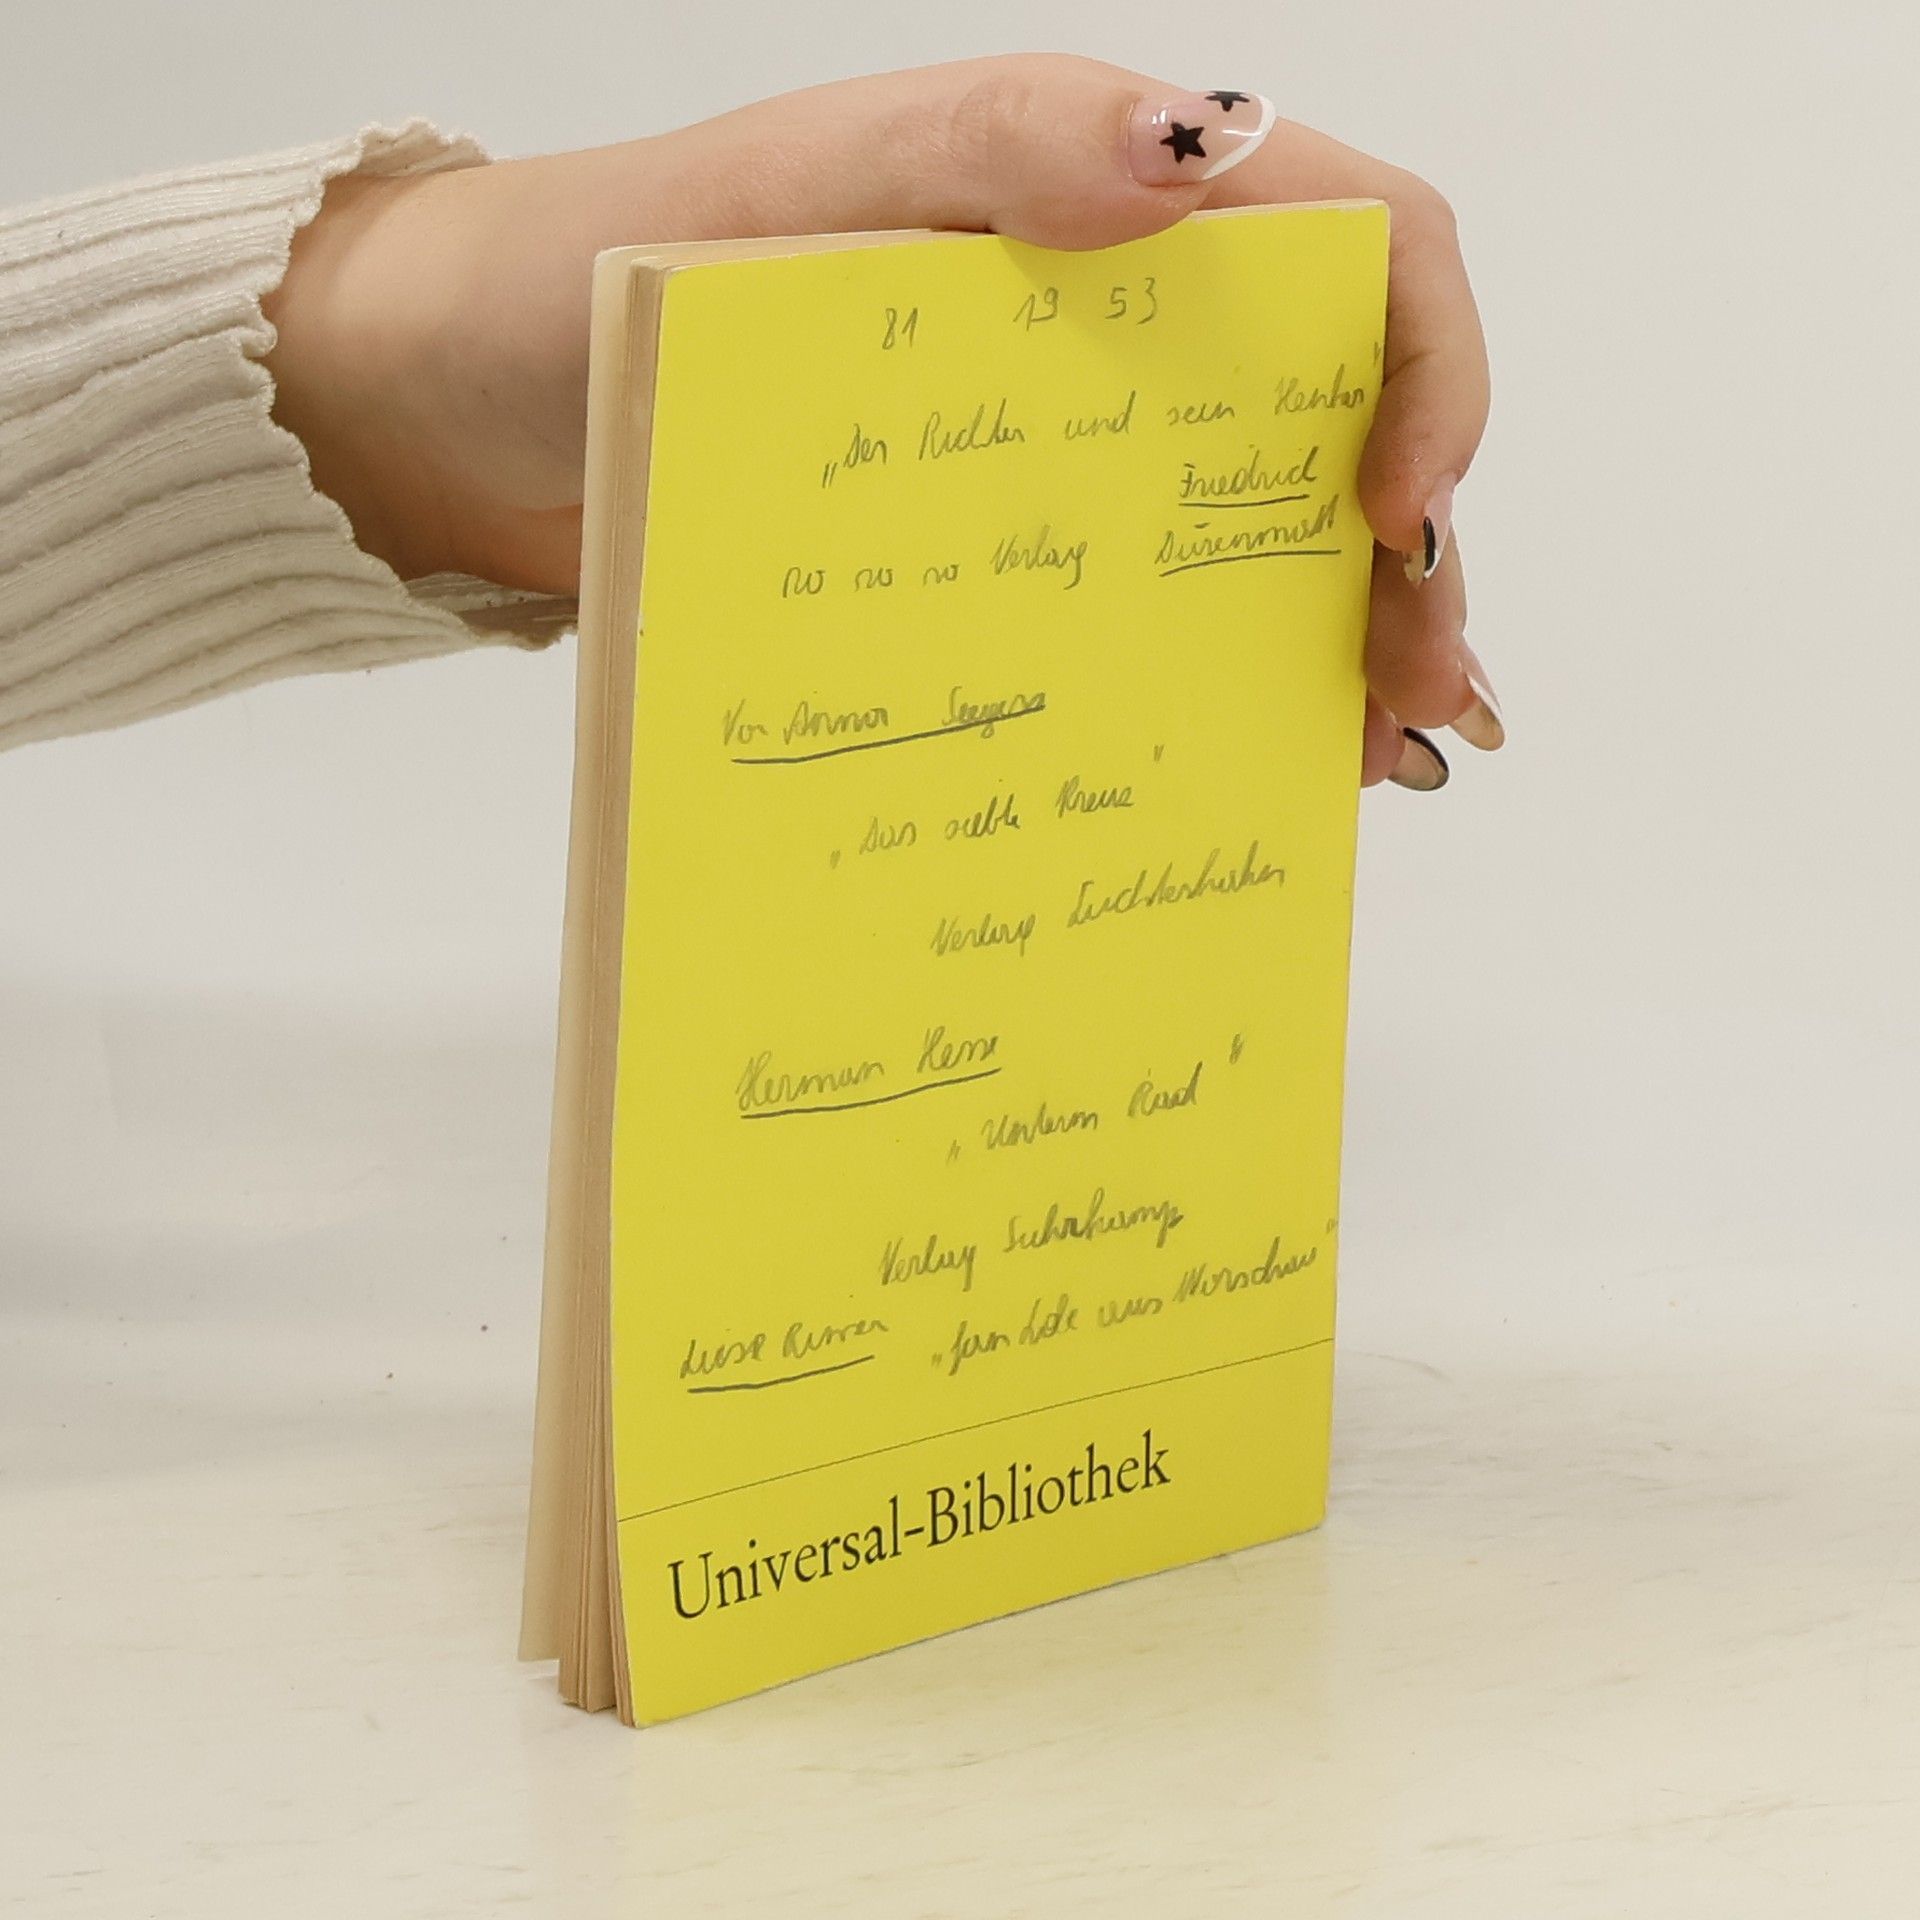 81 19 53
„Der Richter und sein Henker"
Friedrich
ro ro ro Verlag Dürenmatt
Von Anna Seegers
„Das siebte Kreuz"
Verlag Luchterhahn
Herman Hesse
„Unterm Rad"
Verlag Suhrkamp
Luise Rinser „Jan Lobel aus Warschau"
Universal-Bibliothek